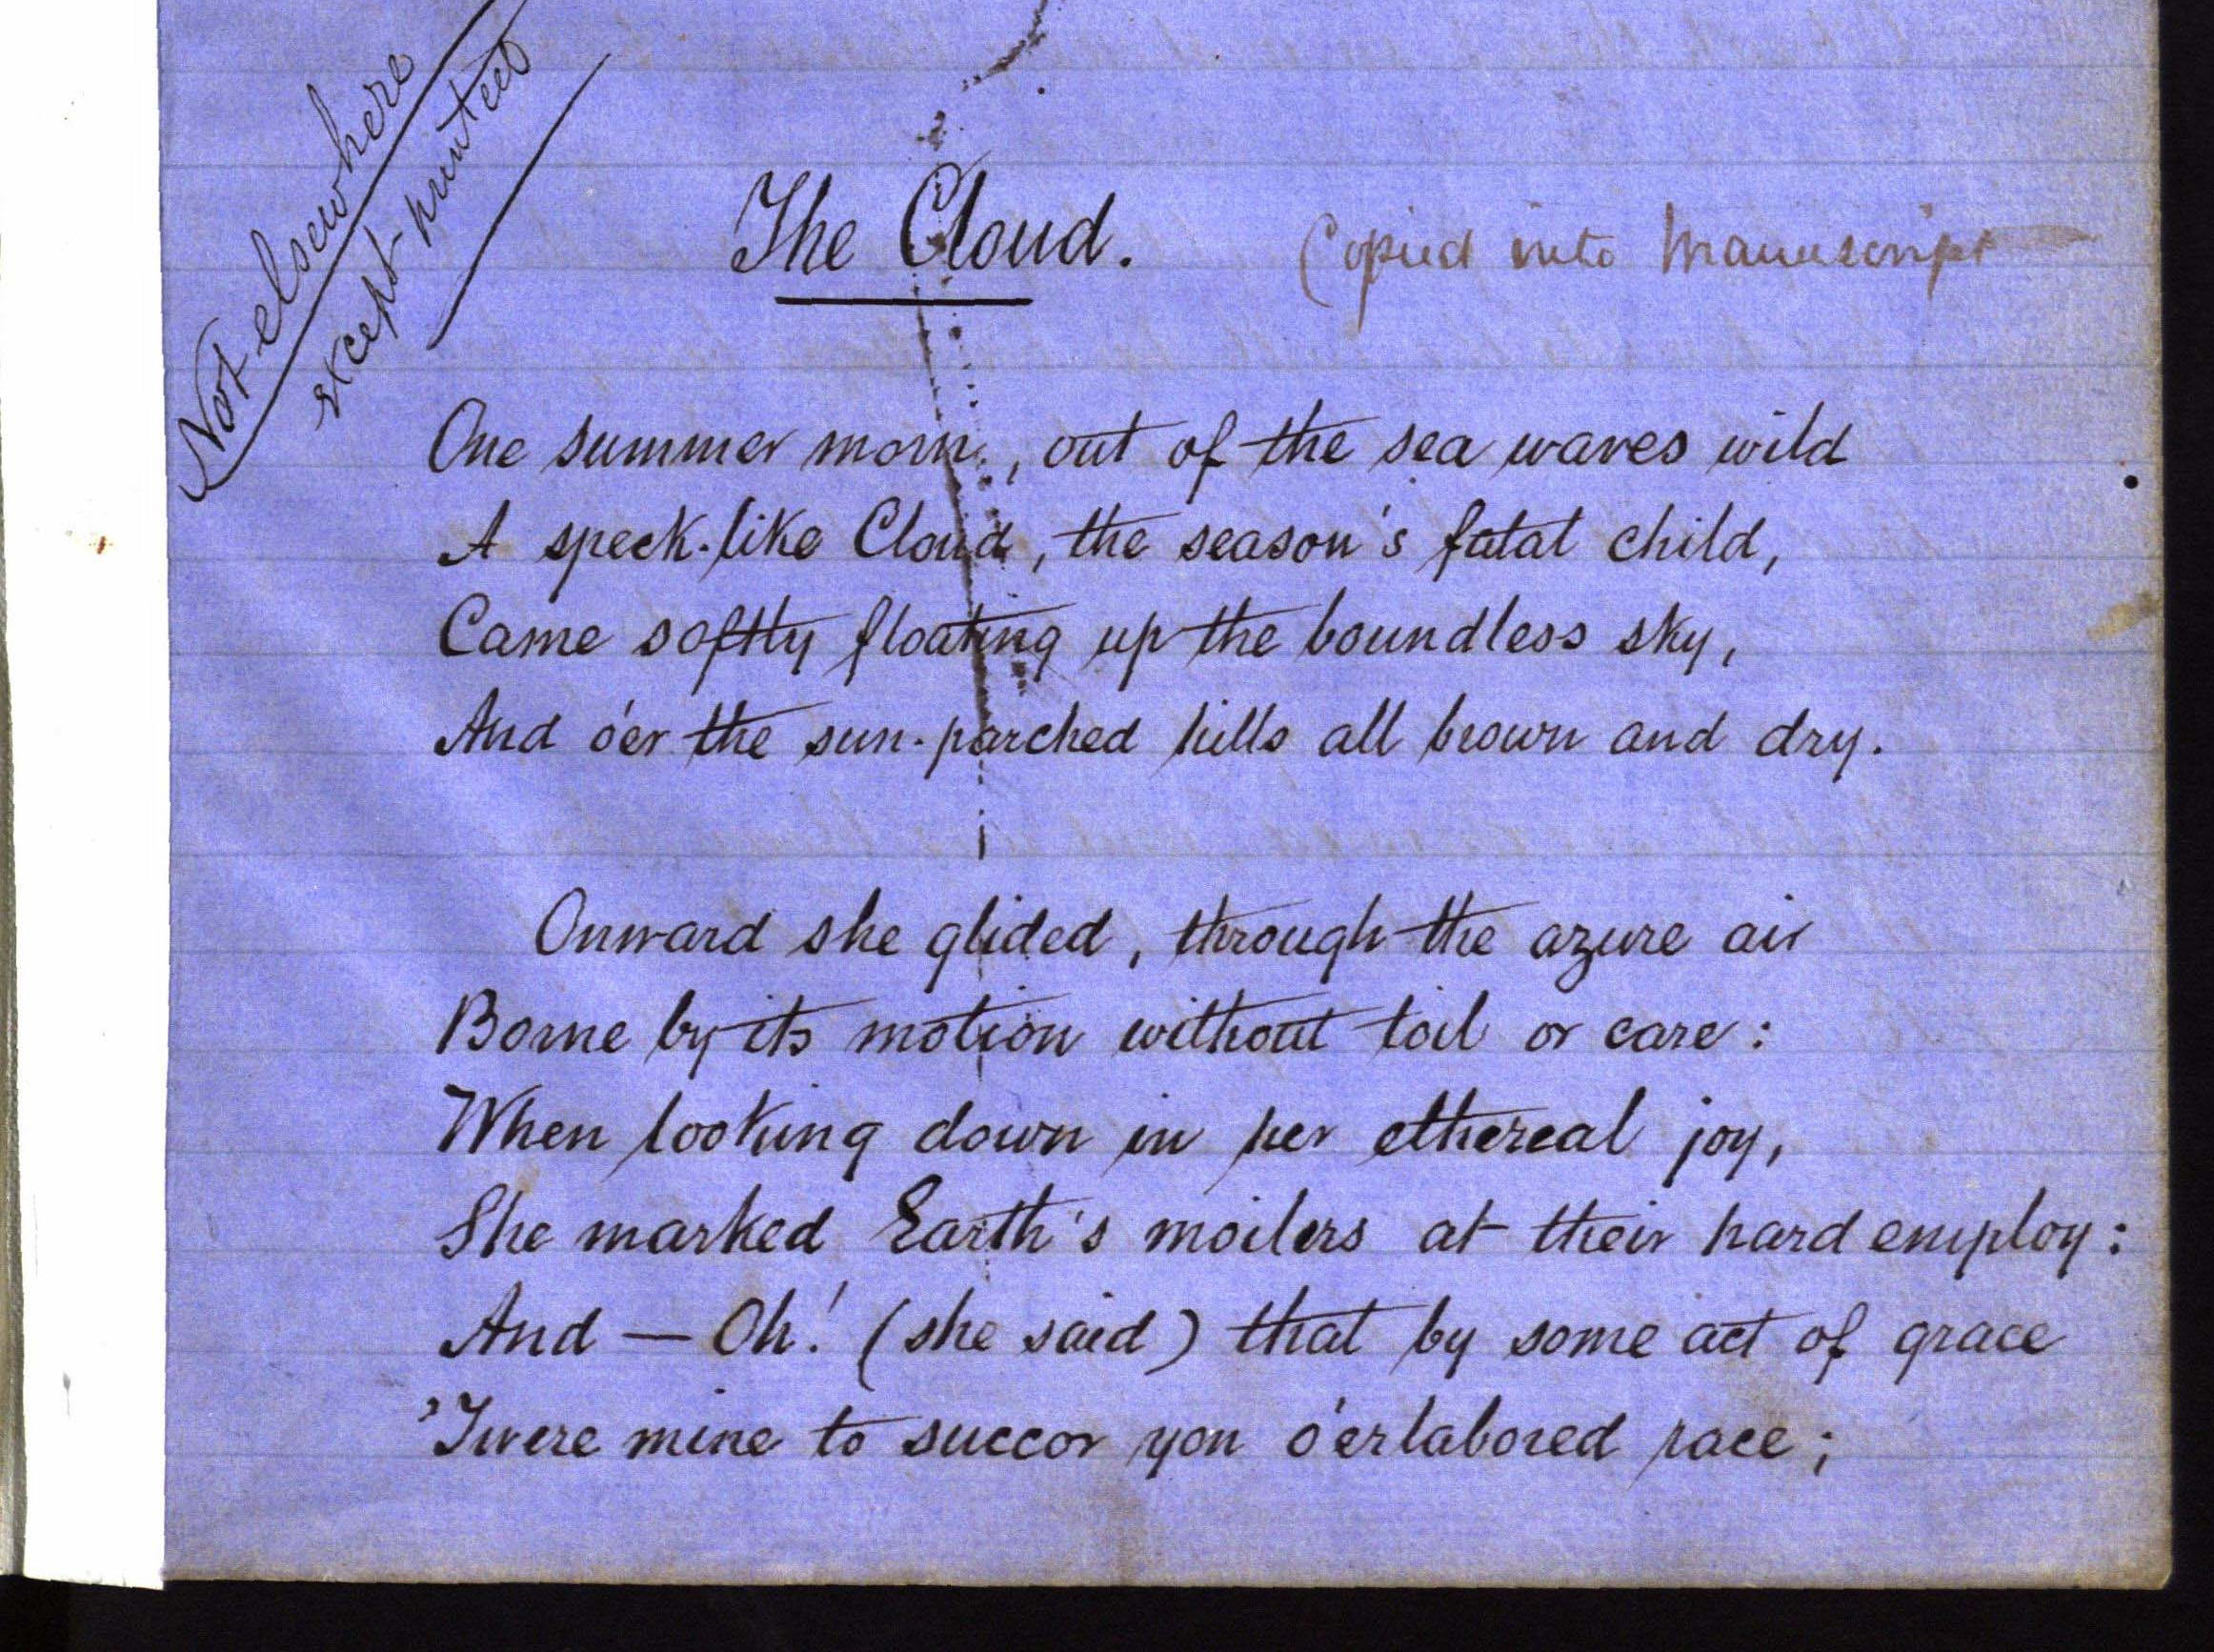 Not elsewhere
except printed
The Cloud.
Copied into Manuscript
One summer morn, out of the sea waves wild
A speck-like Cloud, the season's fatal child,
Came softly floating up the boundless sky,
And o'er the sun-parched hills all brown and dry.
Onward she glided, through the azure air
Borne by its motion without toil or care:
When looking down in her ethereal joy,
She marked Earth's moilers at their hard employ:
And — Oh! (she said) that by some act of grace
'Twere mine to succor yon o'erlabored race;